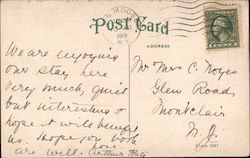 Post Card
ADDRESS
1915
N.Y.
We are enjoying
our stay here
very much, quiet
but interesting &
hope it will benefit
us. Hope you both
are well.
Mr Mrs C. Noyes
Glen Road,
Montclair
N. J.